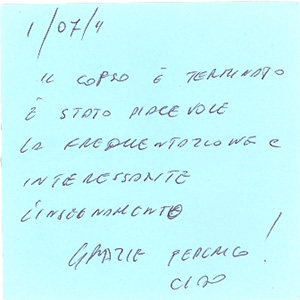 1/07/4
IL CORSO È TERMINATO
È STATO PIACEVOLE
LA FREQUENTAZIONE E
INTERESSANTE
L'INSEGNAMENTO
GRAZIE FEDERICO!
CIAO